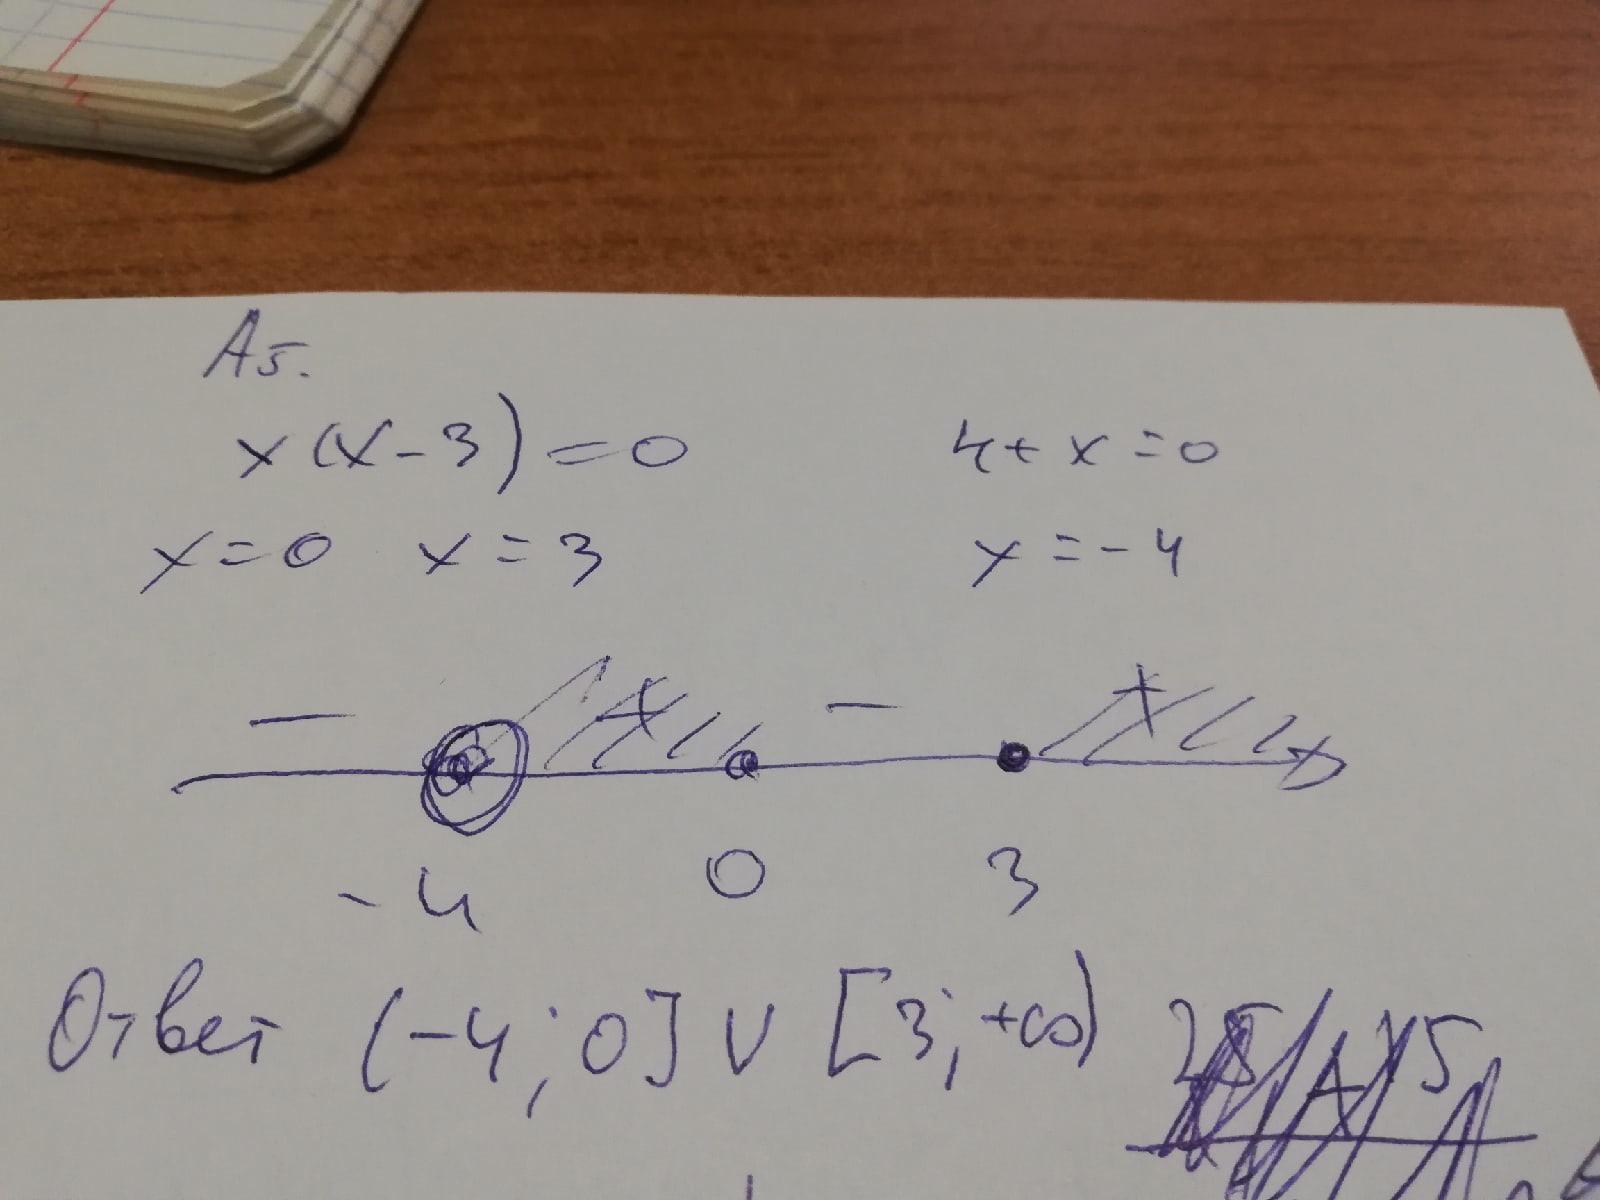 А5.
x(x-3)=0 4+x=0
x=0 x=3 x=-4
- + - +
-4 0 3
Ответ (-4; 0] ∪ [3; +∞)